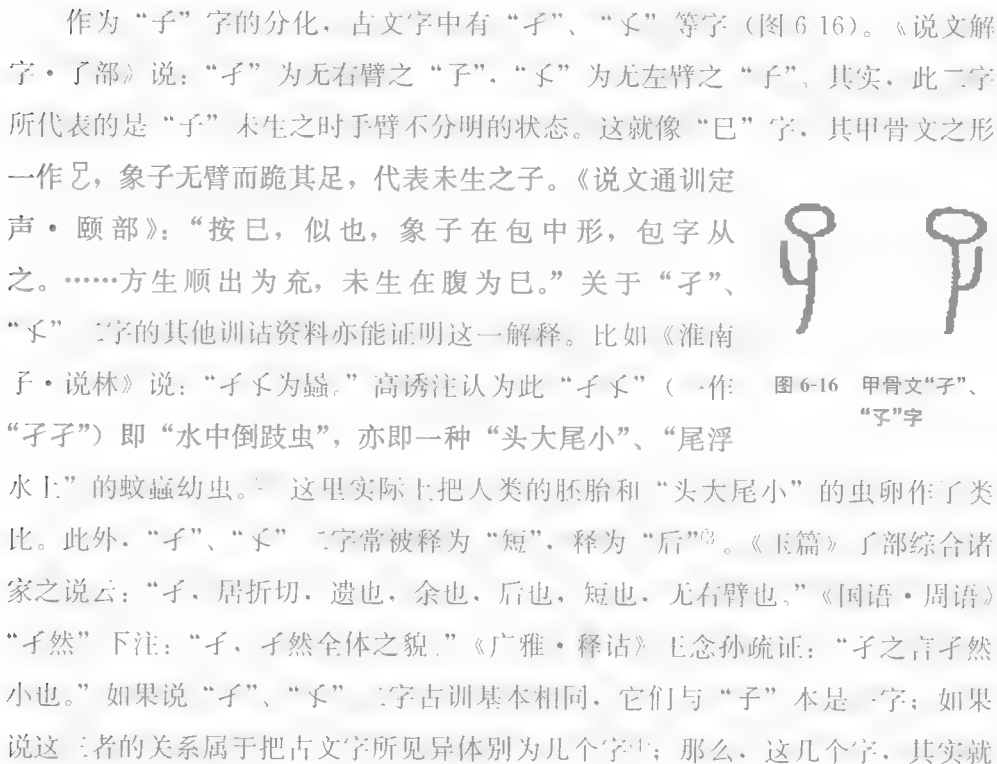 作为“子”字的分化，古文字中有“孑”、“孓”等字（图6-16）。《说文解
字·了部》说：“孑”为无右臂之“子”，“孓”为无左臂之“子”。其实，此二字
所代表的是“子”未生之时手臂不分明的状态。这就像“巳”字，其甲骨文之形
一作，象子无臂而跪其足，代表未生之子。《说文通训定
声·颐部》：“按巳，似也，象子在包中形，包字从
之。……方生顺出为㐬，未生在腹为巳。”关于“孑”、
“孓”二字的其他训诂资料亦能证明这一解释。比如《淮南
子·说林》说：“孑孓为蟁。”高诱注认为此“孑孓”（一作
“孑孑”）即“水中倒跂虫”，亦即一种“头大尾小”、“尾浮
水上”的蚊蟁幼虫。这里实际上把人类的胚胎和“头大尾小”的虫卵作了类
比。此外，“孑”、“孓”二字常被释为“短”，释为“后”③。《玉篇》了部综合诸
家之说云：“孑，居折切，遗也，余也，后也，短也，无右臂也。”《国语·周语》
“孑然”下注：“孑，孑然全体之貌。”《广雅·释诂》王念孙疏证：“孑之言孑然
小也。”如果说“孑”、“孓”二字古训基本相同，它们与“子”本是一字；如果
说这三者的关系属于把古文字所见异体别为几个字；那么，这几个字，其实就
图6-16 甲骨文“孑”、
“孓”字